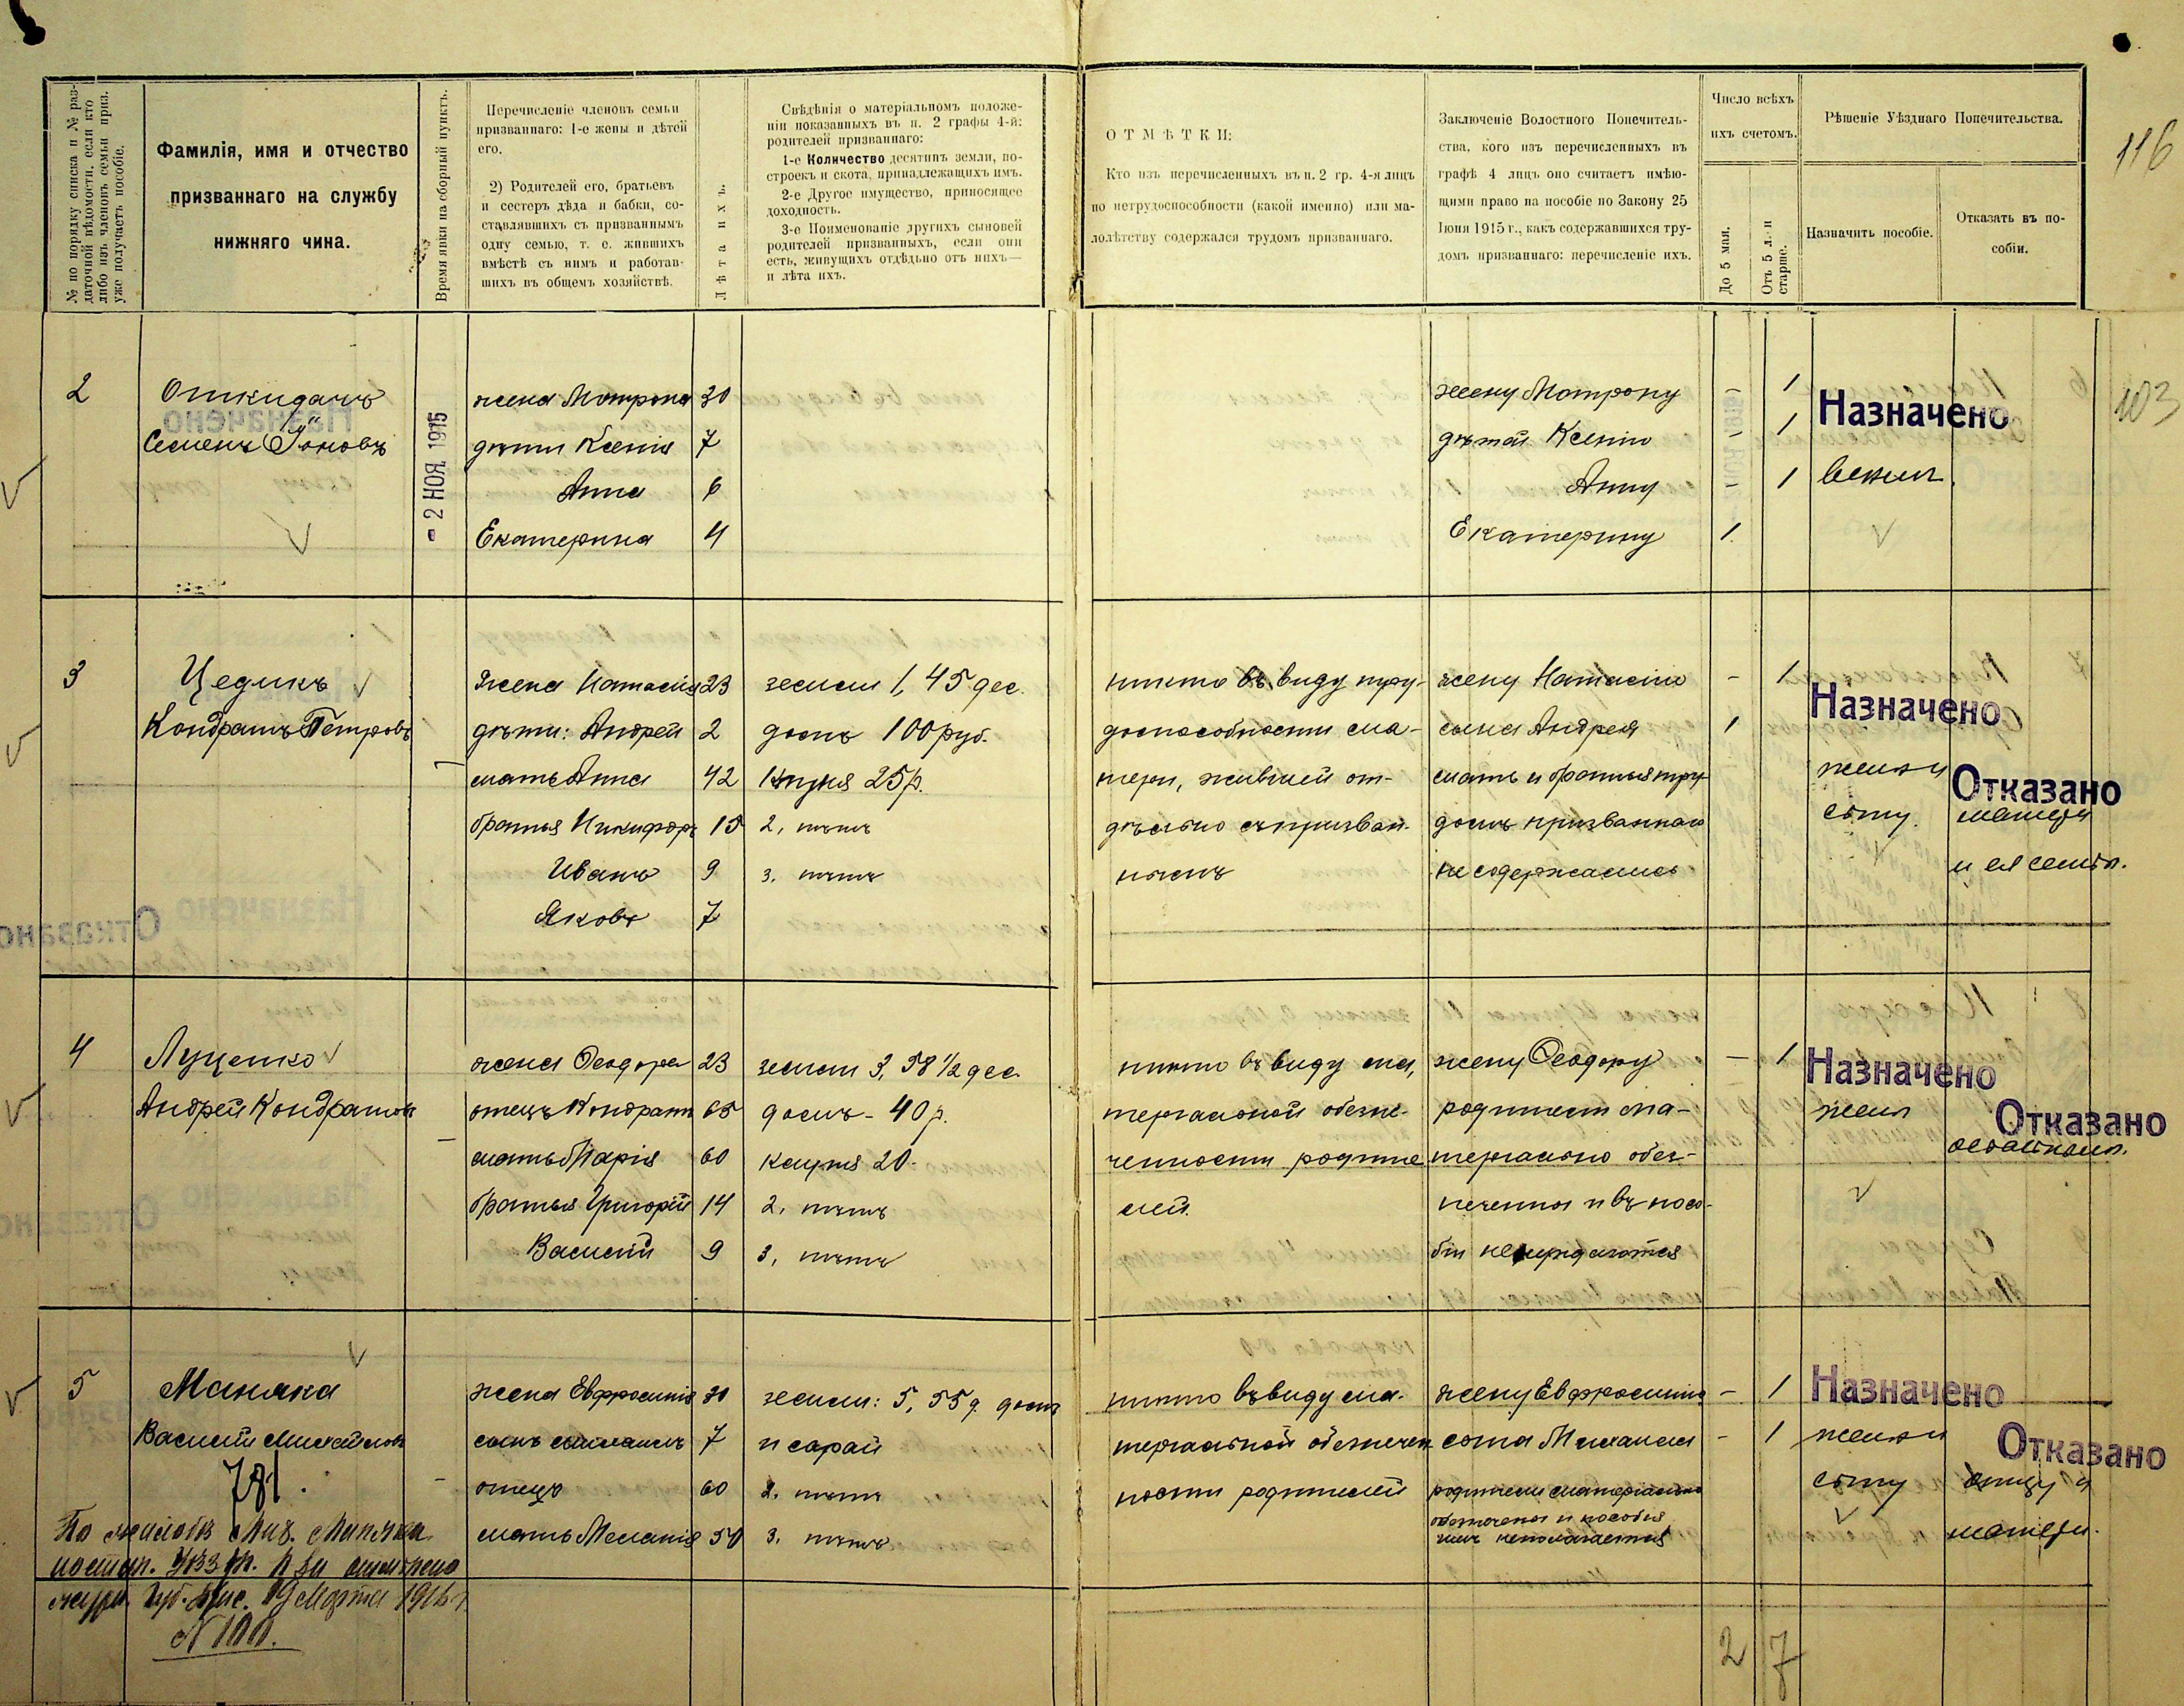 116
103
№ по порядку списка и № раз-
даточной вѣдомости, если кто
либо изъ членовъ семьи приз.
уже получаетъ пособіе.
Фамилія, имя и отчество
призваннаго на службу
нижняго чина.
Время явки на сборный пунктъ.
Перечисленіе членовъ семьи
призваннаго: 1-е жены и дѣтей
его.
2) Родителей его, братьевъ
и сестеръ дѣда и бабки, со-
ставлявшихъ съ призваннымъ
одну семью, т. е. жившихъ
вмѣстѣ съ нимъ и работав-
шихъ въ общемъ хозяйствѣ.
Лѣта ихъ.
Свѣдѣнія о матеріальномъ положе-
ніи показанныхъ въ п. 2 графы 4-й:
родителей призваннаго:
1-е Количество десятинъ земли, по-
строекъ и скота, принадлежащихъ имъ.
2-е Другое имущество, приносящее
доходность.
3-е Поименованіе другихъ сыновей
родителей призванныхъ, если они
есть, живущихъ отдѣльно отъ нихъ—
и лѣта ихъ.
ОТМѢТКИ:
Кто изъ перечисленныхъ въ п. 2 гр. 4-я лицъ
по нетрудоспособности (какой именно) или ма-
лолѣтству содержался трудомъ призваннаго.
Заключеніе Волостного Попечитель-
ства, кого изъ перечисленныхъ въ
графѣ 4 лицъ оно считаетъ имѣю-
щими право на пособіе по Закону 25
Іюня 1915 г., какъ содержавшихся тру-
домъ призваннаго: перечисленіе ихъ.
Число всѣхъ
ихъ счетомъ.
До 5 мая.
Отъ 5 л. и
старше.
Рѣшеніе Уѣзднаго Попечительства.
Назначить пособіе.
Отказать въ по-
собіи.
2 Откидачъ жена Матрона 30 жену Матрону - 1 Назначено
Семенъ Іоновъ - 2 НОЯ. 1915 дѣти Ксенія 7 дѣтей Ксенію - 1
Анна 6 Анну - 1 всѣмъ
Екатерина 4 Екатерину 1
3 Цедикъ жена Наталія 23 земли 1,45 дес. никто въ виду тру- жену Наталію - 1 Назначено
Кондратъ Петровъ дѣти: Андрей 2 домъ 100 руб. доспособности ма- сына Андрея 1
мать Анна 42 клуня 25 р. тери, жившей от- мать и братья тру- женѣ и Отказано
братья Никифоръ 15 2, нѣтъ дѣльно съ призван- домъ призваннаго сыну. матери
Иванъ 9 3, нѣтъ нымъ не содержались и ея семьѣ.
Яковъ 7
4 Луценко жена Ѳеодора 23 земли 3,58 1/2 дес. никто въ виду ма, жену Ѳеодору - 1 Назначено
Андрей Кондратов отецъ Кондратъ 65 домъ - 40 р. теріальной обезпе- родители ма- женѣ Отказано
мать Марія 60 клуня 20 ченности родите теріально обез- остальнымъ.
братья Григорій 14 2, нѣтъ лей. печенны и въ посо-
Василій 9 3, нѣтъ біи не нуждаются
5 Маняка жена Евфросинія 30 земли: 5,55 д. домъ никто въ виду ма- жену Евфросинію - 1 Назначено
Василій Михайловъ сынъ Михаилъ 7 и сарай теріальной обезпечен сына Михаила - 1 женѣ и Отказано
781. отецъ 60 2. нѣтъ ности родителей родители матеріально сыну отцу и
обезпечены и пособія
мать Меланія 50 3. нѣтъ имъ не полагается матери.
По жалобѣ Мих. Маняка
постан. отмѣнено
журн. Губ. 19 Марта 1916 г.
N 100.
2 7